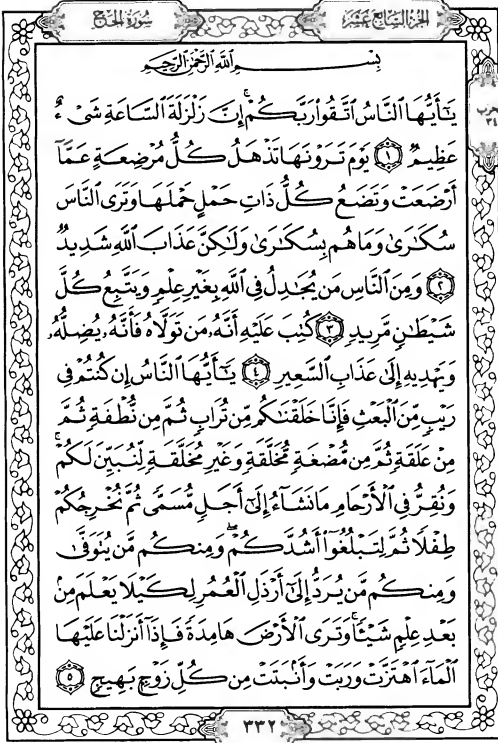 سُورَةُ الحَجِّ
الجُزءُ السَّابِعُ عَشَرَ
بِسْمِ اللَّهِ الرَّحْمَٰنِ الرَّحِيمِ
يَٰٓأَيُّهَا ٱلنَّاسُ ٱتَّقُوا۟ رَبَّكُمْ ۚ إِنَّ زَلْزَلَةَ ٱلسَّاعَةِ شَىْءٌ
عَظِيمٌ ١ يَوْمَ تَرَوْنَهَا تَذْهَلُ كُلُّ مُرْضِعَةٍ عَمَّآ
أَرْضَعَتْ وَتَضَعُ كُلُّ ذَاتِ حَمْلٍ حَمْلَهَا وَتَرَى ٱلنَّاسَ
سُكَٰرَىٰ وَمَا هُم بِسُكَٰرَىٰ وَلَٰكِنَّ عَذَابَ ٱللَّهِ شَدِيدٌ
٢ وَمِنَ ٱلنَّاسِ مَن يُجَٰدِلُ فِى ٱللَّهِ بِغَيْرِ عِلْمٍ وَيَتَّبِعُ كُلَّ
شَيْطَٰنٍ مَّرِيدٍ ٣ كُتِبَ عَلَيْهِ أَنَّهُۥ مَن تَوَلَّاهُ فَأَنَّهُۥ يُضِلُّهُۥ
وَيَهْدِيهِ إِلَىٰ عَذَابِ ٱلسَّعِيرِ ٤ يَٰٓأَيُّهَا ٱلنَّاسُ إِن كُنتُمْ فِى
رَيْبٍ مِّنَ ٱلْبَعْثِ فَإِنَّا خَلَقْنَٰكُم مِّن تُرَابٍ ثُمَّ مِن نُّطْفَةٍ ثُمَّ
مِنْ عَلَقَةٍ ثُمَّ مِن مُّضْغَةٍ مُّخَلَّقَةٍ وَغَيْرِ مُخَلَّقَةٍ لِّنُبَيِّنَ لَكُمْ ۚ
وَنُقِرُّ فِى ٱلْأَرْحَامِ مَا نَشَآءُ إِلَىٰٓ أَجَلٍ مُّسَمًّى ثُمَّ نُخْرِجُكُمْ
طِفْلًا ثُمَّ لِتَبْلُغُوٓا۟ أَشُدَّكُمْ ۖ وَمِنكُم مَّن يُتَوَفَّىٰ
وَمِنكُم مَّن يُرَدُّ إِلَىٰٓ أَرْذَلِ ٱلْعُمُرِ لِكَيْلَا يَعْلَمَ مِنۢ
بَعْدِ عِلْمٍ شَيْـًٔا ۚ وَتَرَى ٱلْأَرْضَ هَامِدَةً فَإِذَآ أَنزَلْنَا عَلَيْهَا
ٱلْمَآءَ ٱهْتَزَّتْ وَرَبَتْ وَأَنۢبَتَتْ مِن كُلِّ زَوْجٍۭ بَهِيجٍ ٥
٣٣٢